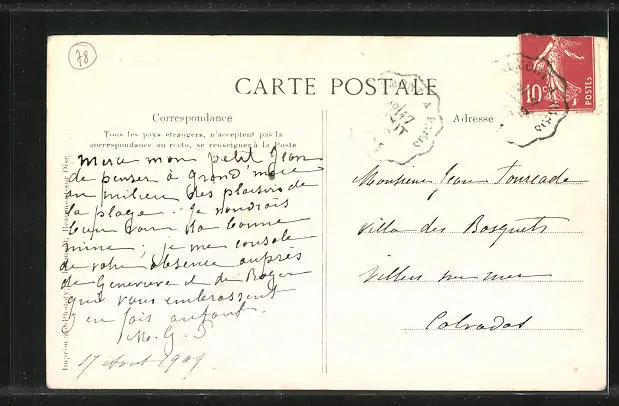 78
CARTE POSTALE
Correspondance
Tous les pays étrangers, n'acceptent pas la
correspondance au recto, se renseigner à la Poste
Adresse
10c
POSTES
PARIS
Merci mon petit Jean
de penser à grand'mère
au milieu des plaisirs de
la plage. je voudrais
bien voir ta bonne
mine; je me console
de votre absence auprès
de Geneviève et de Roger
qui vous embrassent
j'en fais autant.
M. G. S.
17 Août 1909
Monsieur Jean
Villa des Bosquets
Villers sur mer
Calvados